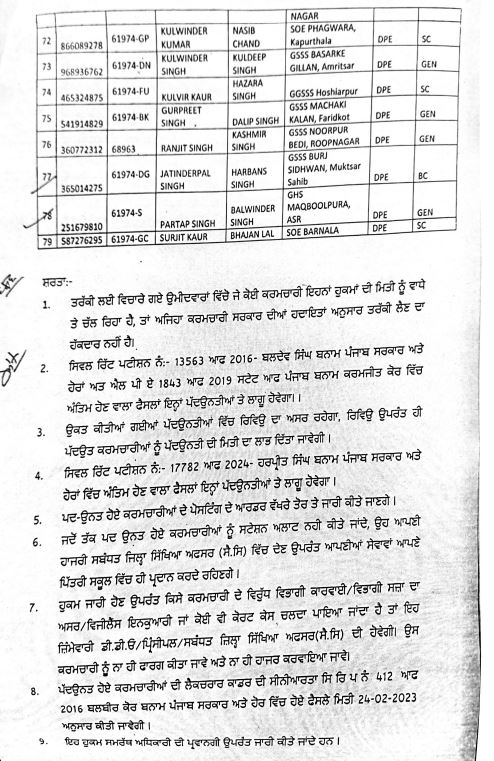 NAGAR
72 866089278 61974-GP KULWINDER KUMAR NASIB CHAND SOE PHAGWARA, Kapurthala DPE SC
73 968936762 61974-DN KULWINDER SINGH KULDEEP SINGH GSSS BASARKE GILLAN, Amritsar DPE GEN
74 465324875 61974-FU KULVIR KAUR HAZARA SINGH GGSSS Hoshiarpur DPE SC
75 541914829 61974-BK GURPREET SINGH DALIP SINGH GSSS MACHAKI KALAN, Faridkot DPE GEN
76 360772312 68963 RANJIT SINGH KASHMIR SINGH GSSS NOORPUR BEDI, ROOPNAGAR DPE GEN
77 365014275 61974-DG JATINDERPAL SINGH HARBANS SINGH GSSS BURJ SIDHWAN, Muktsar Sahib DPE BC
78 251679810 61974-S PARTAP SINGH BALWINDER SINGH GHS MAQBOOLPURA, ASR DPE GEN
79 587276295 61974-GC SURJIT KAUR BHAJAN LAL SOE BARNALA DPE SC
ਸ਼ਰਤਾਂ:-
1. ਤਰੱਕੀ ਲਈ ਵਿਚਾਰੇ ਗਏ ਉਮੀਦਵਾਰਾਂ ਵਿੱਚੋ ਜੇ ਕੋਈ ਕਰਮਚਾਰੀ ਇਹਨਾਂ ਹੁਕਮਾਂ ਦੀ ਮਿਤੀ ਨੂੰ ਵਾਧੇ
ਤੇ ਚੱਲ ਰਿਹਾ ਹੈ, ਤਾਂ ਅਜਿਹਾ ਕਰਮਚਾਰੀ ਸਰਕਾਰ ਦੀਆਂ ਹਦਾਇਤਾਂ ਅਨੁਸਾਰ ਤਰੱਕੀ ਲੈਣ ਦਾ
ਹੱਕਦਾਰ ਨਹੀਂ ਹੈ।
2. ਸਿਵਲ ਰਿੱਟ ਪਟੀਸ਼ਨ ਨੰ:- 13563 ਆਫ 2016- ਬਲਦੇਵ ਸਿੰਘ ਬਨਾਮ ਪੰਜਾਬ ਸਰਕਾਰ ਅਤੇ
ਹੋਰਾਂ ਅਤ ਐਲ ਪੀ ਏ 1843 ਆਫ 2019 ਸਟੇਟ ਆਫ ਪੰਜਾਬ ਬਨਾਮ ਕਰਮਜੀਤ ਕੋਰ ਵਿੱਚ
ਅੰਤਿਮ ਹੋਣ ਵਾਲਾ ਫੈਸਲਾਂ ਇਨ੍ਹਾਂ ਪੱਦਉਨਤੀਆਂ ਤੇ ਲਾਗੂ ਹੋਵੇਗਾ।।
3. ਉਕਤ ਕੀਤੀਆਂ ਗਈਆਂ ਪੱਦਉਨਤੀਆਂ ਵਿੱਚ ਰਿਵਿਊ ਦਾ ਅਸਰ ਰਹੇਗਾ, ਰਿਵਿਊ ਉਪਰੰਤ ਹੀ
ਪੱਦਉਤ ਕਰਮਚਾਰੀਆਂ ਨੂੰ ਪੱਦਉਨਤੀ ਦੀ ਮਿਤੀ ਦਾ ਲਾਭ ਦਿੱਤਾ ਜਾਵੇਗੀ।
4. ਸਿਵਲ ਰਿੱਟ ਪਟੀਸ਼ਨ ਨੰ:- 17782 ਆਫ 2024- ਹਰਪ੍ਰੀਤ ਸਿੰਘ ਬਨਾਮ ਪੰਜਾਬ ਸਰਕਾਰ ਅਤੇ
ਹੋਰਾਂ ਵਿੱਚ ਅੰਤਿਮ ਹੋਣ ਵਾਲਾ ਫੈਸਲਾਂ ਇਨ੍ਹਾਂ ਪੱਦਉਨਤੀਆਂ ਤੇ ਲਾਗੂ ਹੋਵੇਗਾ।
5. ਪਦ-ਉਨਤ ਹੋਏ ਕਰਮਚਾਰੀਆਂ ਦੇ ਪੋਸਟਿੰਗ ਦੇ ਆਰਡਰ ਵੱਖਰੇ ਤੋਰ ਤੇ ਜਾਰੀ ਕੀਤੇ ਜਾਣਗੇ।
6. ਜਦੋਂ ਤੱਕ ਪਦ ਉਨਤ ਹੋਏ ਕਰਮਚਾਰੀਆਂ ਨੂੰ ਸਟੇਸ਼ਨ ਅਲਾਟ ਨਹੀ ਕੀਤੇ ਜਾਂਦੇ, ਉਹ ਆਪਣੀ
ਹਾਜਰੀ ਸਬੰਧਤ ਜ਼ਿਲ੍ਹਾ ਸਿੱਖਿਆ ਅਫਸਰ (ਸੈ.ਸਿ) ਵਿੱਚ ਦੇਣ ਉਪਰੰਤ ਆਪਣੀਆਂ ਸੇਵਾਵਾਂ ਆਪਣੇ
ਪਿੱਤਰੀ ਸਕੂਲ ਵਿੱਚ ਹੀ ਪ੍ਰਦਾਨ ਕਰਦੇ ਰਹਿਣਗੇ।
7. ਹੁਕਮ ਜਾਰੀ ਹੋਣ ਉਪਰੰਤ ਕਿਸੇ ਕਰਮਚਾਰੀ ਦੇ ਵਿਰੁੱਧ ਵਿਭਾਗੀ ਕਾਰਵਾਈ/ਵਿਭਾਗੀ ਸਜ਼ਾ ਦਾ
ਅਸਰ/ਵਿਜੀਲੈਂਸ ਇਨਕੁਆਰੀ ਜਾਂ ਕੋਈ ਵੀ ਕੋਰਟ ਕੇਸ ਚਲਦਾ ਪਾਇਆ ਜਾਂਦਾ ਹੈ ਤਾਂ ਇਹ
ਜ਼ਿੰਮੇਵਾਰੀ ਡੀ.ਡੀ.ਓ/ਪ੍ਰਿੰਸੀਪਲ/ਸਬੰਧਤ ਜ਼ਿਲ੍ਹਾ ਸਿੱਖਿਆ ਅਫਸਰ(ਸੈ.ਸਿ) ਦੀ ਹੋਵੇਗੀ। ਉਸ
ਕਰਮਚਾਰੀ ਨੂੰ ਨਾ ਹੀ ਫਾਰਗ ਕੀਤਾ ਜਾਵੇ ਅਤੇ ਨਾ ਹੀ ਹਾਜਰ ਕਰਵਾਇਆ ਜਾਵੇ।
8. ਪੱਦਉਨਤ ਹੋਏ ਕਰਮਚਾਰੀਆਂ ਦੀ ਲੈਕਚਰਾਰ ਕਾਡਰ ਦੀ ਸੀਨੀਆਰਤਾ ਸਿ ਰਿ ਪ ਨੰ 412 ਆਫ
2016 ਬਲਬੀਰ ਕੋਰ ਬਨਾਮ ਪੰਜਾਬ ਸਰਕਾਰ ਅਤੇ ਹੋਰ ਵਿੱਚ ਹੋਏ ਫੈਸਲੇ ਮਿਤੀ 24-02-2023
ਅਨੁਸਾਰ ਕੀਤੀ ਜਾਵੇਗੀ।
9. ਇਹ ਹੁਕਮ ਸਮਰੱਥ ਅਧਿਕਾਰੀ ਦੀ ਪ੍ਰਵਾਨਗੀ ਉਪਰੰਤ ਜਾਰੀ ਕੀਤੇ ਜਾਂਦੇ ਹਨ।